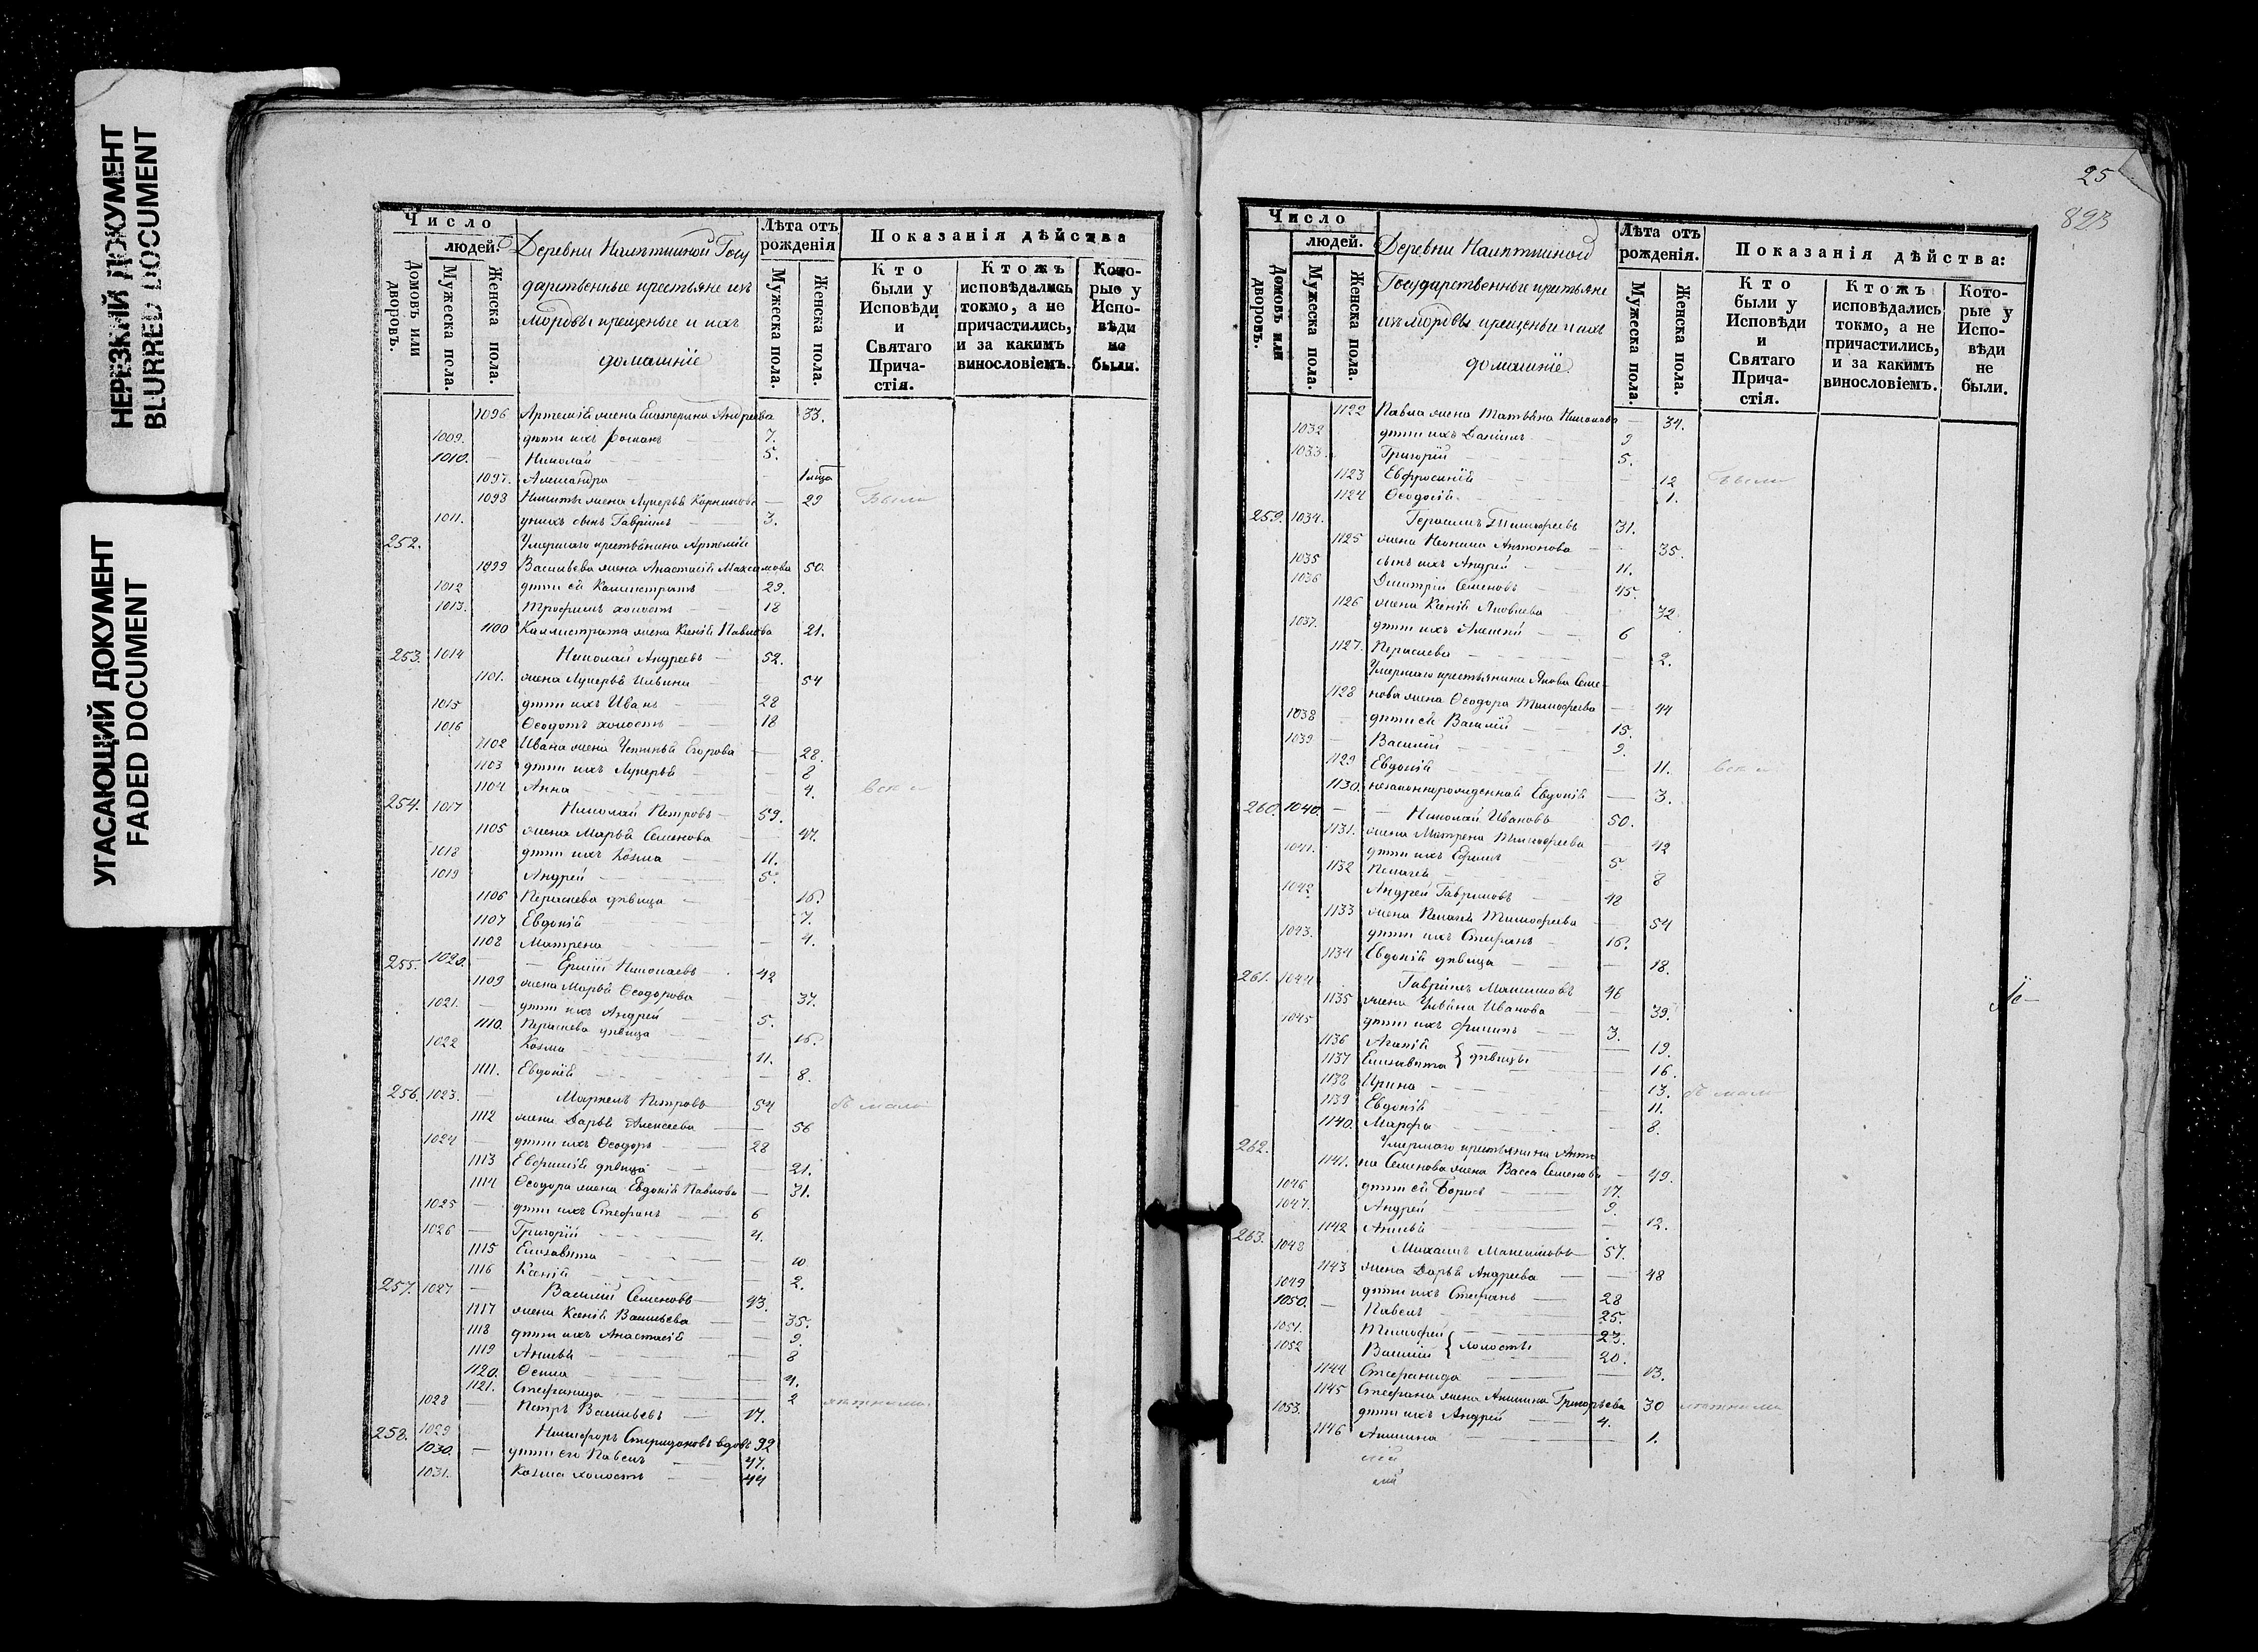 НЕРЕЗКИЙ ДОКУМЕНТ
BLURRED DOCUMENT
УГАСАЮЩИЙ ДОКУМЕНТ
FADED DOCUMENT
Число
людей.
Домовъ или дворовъ.
Мужеска пола.
Женска пола.
Деревни Госу
дарственные крестьяне изъ
Мордвы крещеные и ихъ
домашніе
Лѣта отъ рожденія
Мужеска пола.
Женска пола.
Показанія дѣйства
Кто были у Исповѣди и Святаго Причастія.
Ктожъ исповѣдались токмо, а не причастились, и за какимъ винословіемъ.
Которые у Исповѣди не были.
1096 Артемія жена Екатерина Андреева 33.
1009. дѣти ихъ Романъ 7.
1010. Николай 5.
1097. Александра
1098 Никиты жена Лукерья 29 Были
1011. у нихъ сынъ Гавріилъ 3.
252. Умершаго крестьянина Артемія
1099 Васильева жена Анастасія Максимова 50.
1012 дѣти ея Каллистратъ 29.
1013. Трофимъ холостъ 18
1100 Каллистрата жена Ксенія Павлова 21.
253. 1014 Николай Андреевъ 52.
1101. жена Лукерья Ильина 54
1015 дѣти ихъ Иванъ 28
1016 Ѳеодотъ холостъ 18
1102 Ивана жена Устинья Егорова 28.
1103 дѣти ихъ Лукерья 8
1104 Анна 4. всѣ
254. 1017 Николай Петровъ 59.
1105 жена Марья Семенова 47.
1018 дѣти ихъ Козма 11.
1019 Андрей 5.
1106 Пераскева дѣвица 16.
1107 Евдокія 7.
1108 Матрена 4.
255. 1020. Ермій Николаевъ 42
1109 жена Марья Ѳеодорова 37.
1021. дѣти ихъ Андрей 5.
1110. Пераскева дѣвица 16.
1022 Козма 11.
1111. Евдокія 8.
256. 1023. Маркелъ Петровъ 54
1112 жена Дарья Алексеева 56
1024 дѣти ихъ Ѳеодоръ 28
1113 Евфимія дѣвица 21.
1114 Ѳеодора жена Евдокія Павлова 31.
1025 дѣти ихъ Стефанъ 6
1026 Григорій 4.
1115 Елизавета 10
1116 Ксенія 2.
257. 1027 Василій Семеновъ 43.
1117 жена Ксенія Васильева 35.
1118 дѣти ихъ Анастасія 9.
1119 Акилина 8
1120. Ѳекла 4.
1121. Стефанида 2
1028 Петръ Васильевъ 17.
258. 1029 Никифоръ Спиридоновъ вдовъ 92
1030. дѣти его Павелъ 47.
1031. Козма холостъ 44
25
823
Число
людей.
Домовъ или дворовъ.
Мужеска пола.
Женска пола.
Деревни
Государственные крестьяне
изъ мордвы крещеные и ихъ
домашніе
Лѣта отъ рожденія.
Мужеска пола.
Женска пола.
Показанія дѣйства:
Кто были у Исповѣди и Святаго Причастія.
Ктожъ исповѣдались токмо, а не причастились, и за какимъ винословіемъ.
Которые у Исповѣди не были.
1122 Павла жена Татьяна 34.
1032 дѣти ихъ Даніилъ 9
1033. Григорій 5.
1123 Евфросинія 12 были
1124 Ѳеодосія 1.
259. 1034. Герасимъ Тимофеевъ 31.
1125 жена Неонила Антонова 35.
1035 сынъ ихъ Андрей 11.
1036 Димитрій Семеновъ 45.
1126 жена Ксенія Яковлева 32.
1037. дѣти ихъ Алексѣй 6
1127. Пераскева 2.
Умершаго крестьянина Якова Семе-
1128 нова жена Ѳеодора Тимофеева 44
1038 дѣти ея Василій 15.
1039 Василій 9.
1129 Евдокія 11. всѣ
1130. незаконнорожденная Евдокія 3.
260. 1040. Николай Ивановъ 50.
1131. жена Матрена Тимофеева 42
1041. дѣти ихъ Ефимъ 5.
1132 Пелагея 8
1042 Андрей Гавриловъ 48
1133 жена Пелагея Тимофеева 54
1043. дѣти ихъ Стефанъ 16.
1134 Евдокія дѣвица 18.
261. 1044 Гавріилъ Максимовъ 46
1135 жена Ульяна Иванова 39.
1045 дѣти ихъ Филипъ 3.
1136 Агафія 19.
1137 Елизавета дѣвицы 16.
1138 Ирина 13.
1139 Евдокія 11.
1140. Марфа 8.
262. Умершаго крестьянина Анто
1141. на Семенова жена Васса Семенова 49.
1046 дѣти ея Борисъ 17.
1047. Андрей 9.
1142 12.
263. 1048 Михаилъ Максимовъ 57.
1143 жена Дарья Андреева 48
1049 дѣти ихъ Стефанъ 28
1050. Павелъ 25.
1051. Тимофей 23.
1052 Василій холосты 20.
1144 Стефанида 13.
1145 Стефана жена Акилина Григорьева 30
1053. дѣти ихъ Андрей 4.
1146 Акилина 1.